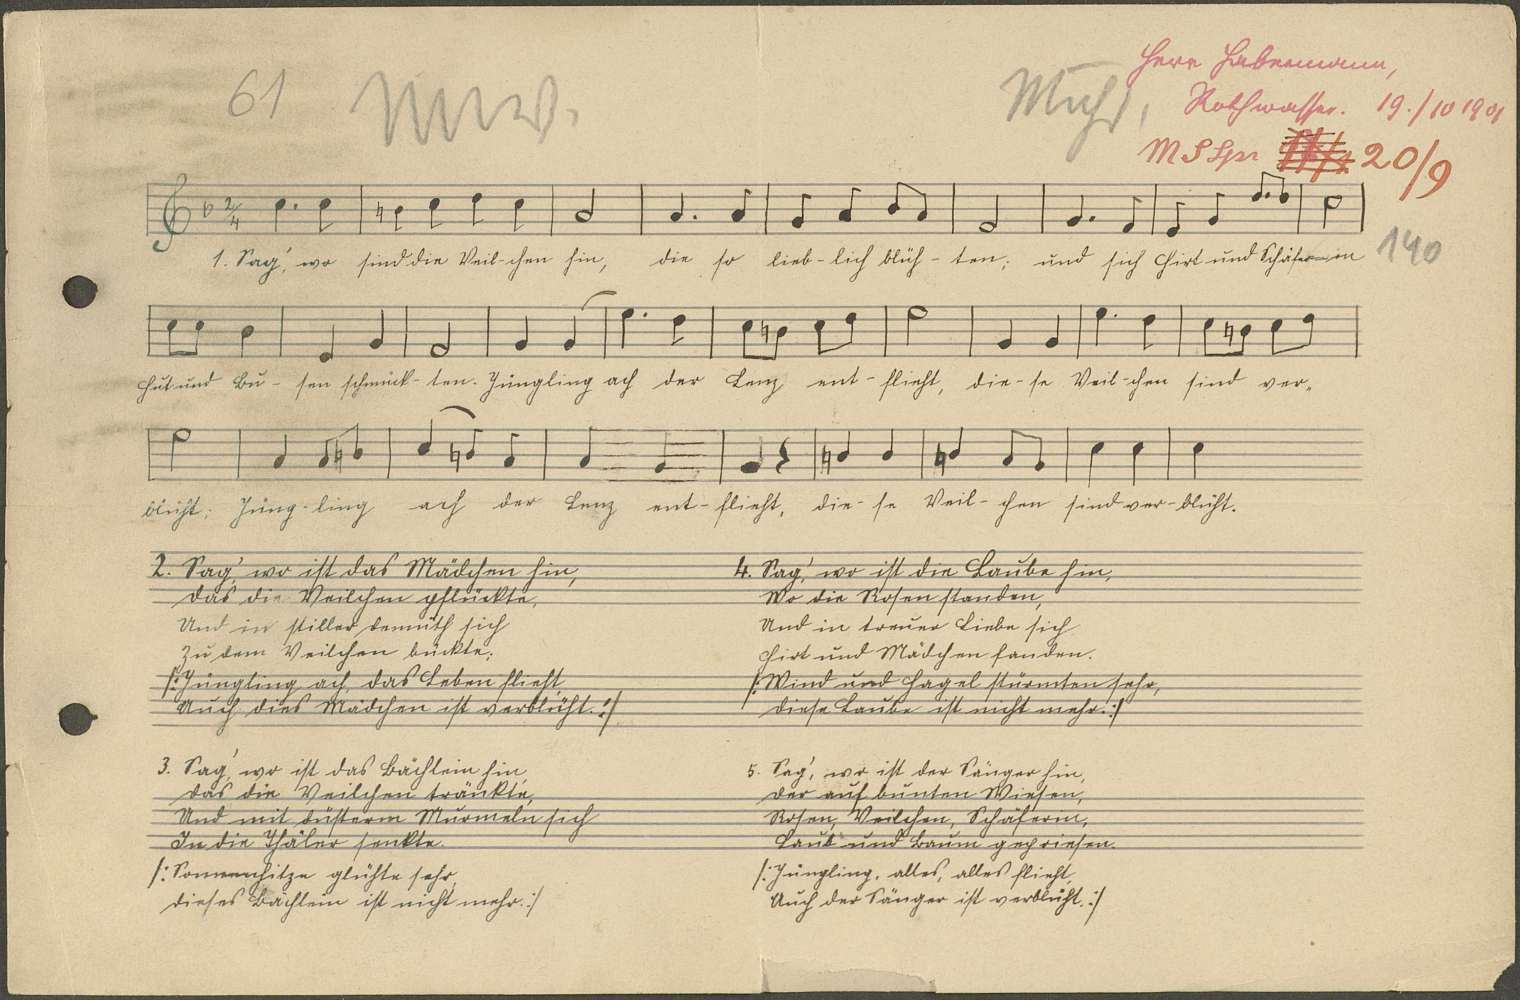 Herr Habermann,
61
Rothwasser. 19./10 1901
20/9
2/4
1. Sag', wo sind die Veil-chen hin, die so lieb-lich blüh-ten; und sich Hirt und Schäferin
140
Hut und Bu-sen schmück-ten. Jüngling ach der Lenz ent-flieht, die-se Veil-chen sind ver-
blüht; Jüng-ling ach der Lenz ent-flieht, die-se Veil-chen sind ver-blüht.
2. Sag', wo ist das Mädchen hin,
das die Veilchen pflückte,
Und in stiller Demuth sich
Zu dem Veilchen bückte;
/: Jüngling ach, das Leben flieht,
Auch dies Mädchen ist verblüht. :/
3. Sag', wo ist das Bächlein hin,
das die Veilchen tränkte,
Und mit düsterm Murmeln sich
In die Thäler senkte.
/: Sonnenhitze glühte sehr,
dieses Bächlein ist nicht mehr. :/
4. Sag', wo ist die Laube hin,
Wo die Rosen standen,
Und in treuer Liebe sich
Hirt und Mädchen fanden.
/: Wind und Hagel stürmten sehr,
diese Laube ist nicht mehr. :/
5. Sag', wo ist der Sänger hin,
der auf bunten Wiesen,
Rosen, Veilchen, Schäferin,
Laub und Baum gepriesen.
/: Jüngling, alles, alles flieht,
Auch der Sänger ist verblüht. :/